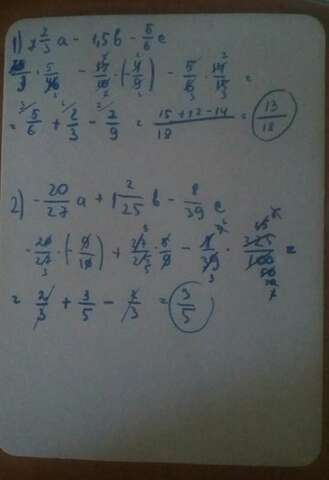 1) 2 2/3 a - 1,5b - 5/6 c
8/3 · 5/16 - 15/10 · (-4/9) - 5/6 · 14/15
= 5/6 + 2/3 - 7/9 = (15+12-14)/18 = 13/18
2) - 20/27 a + 1 2/25 b - 8/39 c
- 20/27 · (-9/10) + 27/25 · 5/9 - 8/39 · 325/100 =
= 2/3 + 3/5 - 2/3 = 3/5